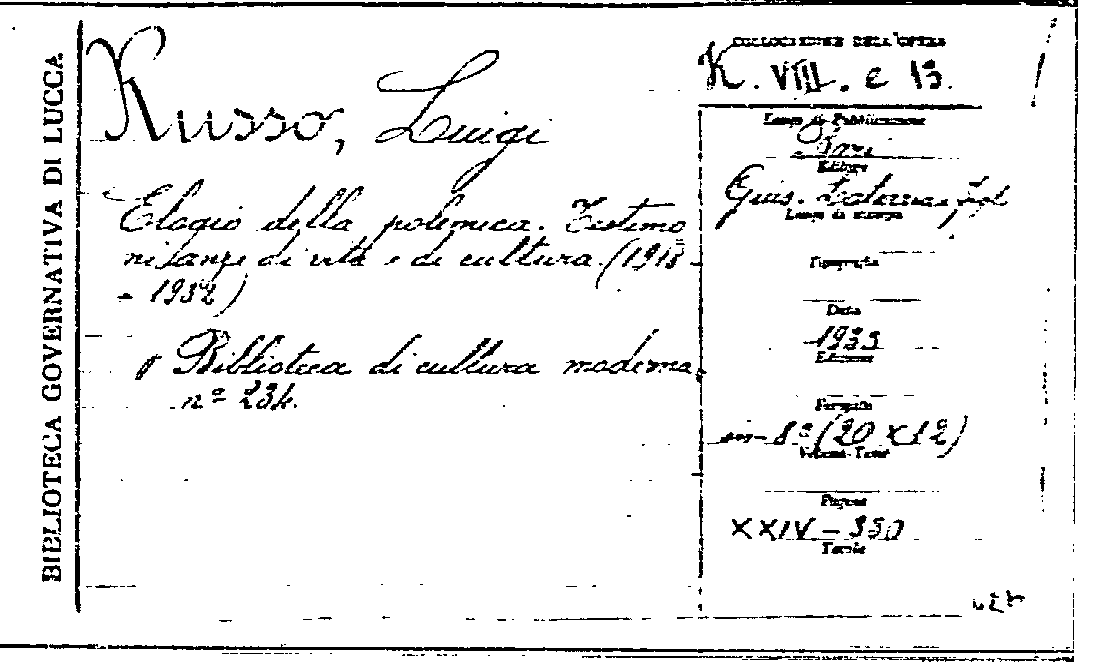 BIBLIOTECA GOVERNATIVA DI LUCCA
Russo, Luigi
Elogio della polemica. Testimo
nianze di vita e di cultura (1918-
- 1932)
Biblioteca di cultura moderna
nº 234.
COLLOCAZIONE DELL'OPERA
K. VIII. e 13.
Luogo di Pubblicazione
Bari
Editore
Gius. Laterza
Luogo di stampa
Tipografia
Data
1933
Edizione
Formato
in-8º (20 x 12)
Volume-Tomo
Pagine
XXIV - 350
Tavole